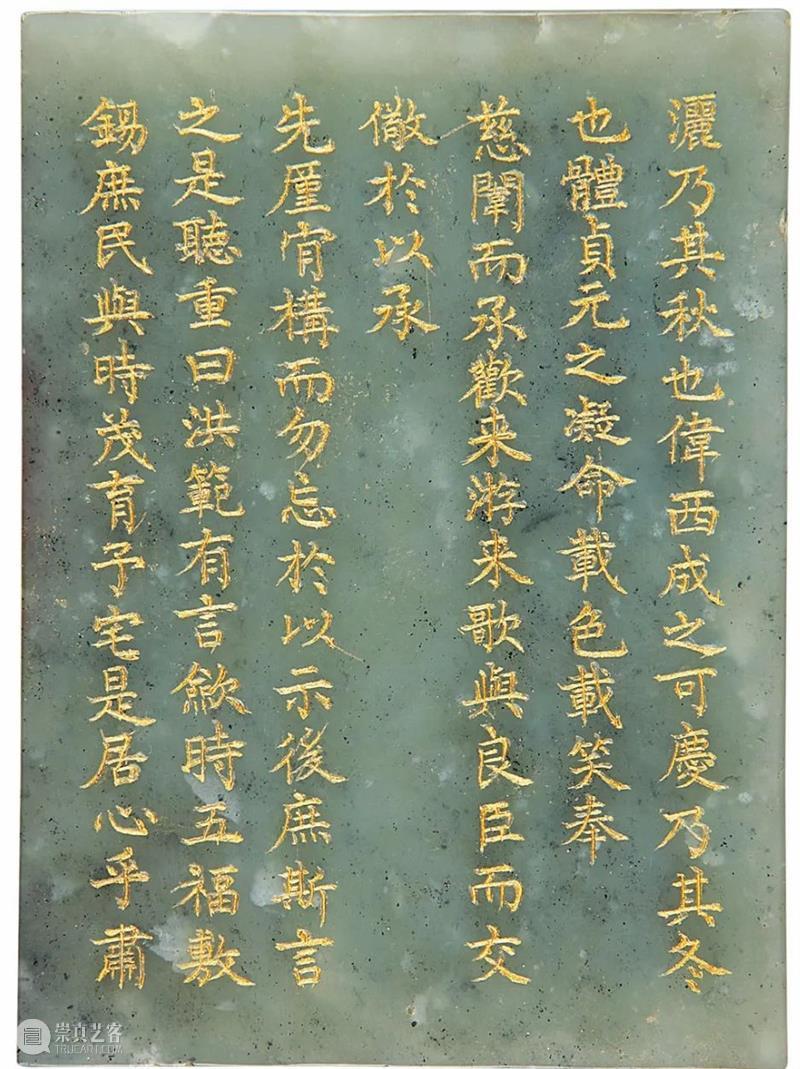 灑乃其秋也偉西成之可慶乃其冬
也體貞元之凝命載色載笑奉
慈闈而承歡来游来歌與良臣而交
儆於以承
先厓肎構而勿忘於以示後庶斯言
之是聽重曰洪範有言斂時五福敷
錫庶民與時茂育予宅是居心乎肅
崇真艺客
TRUEART.COM